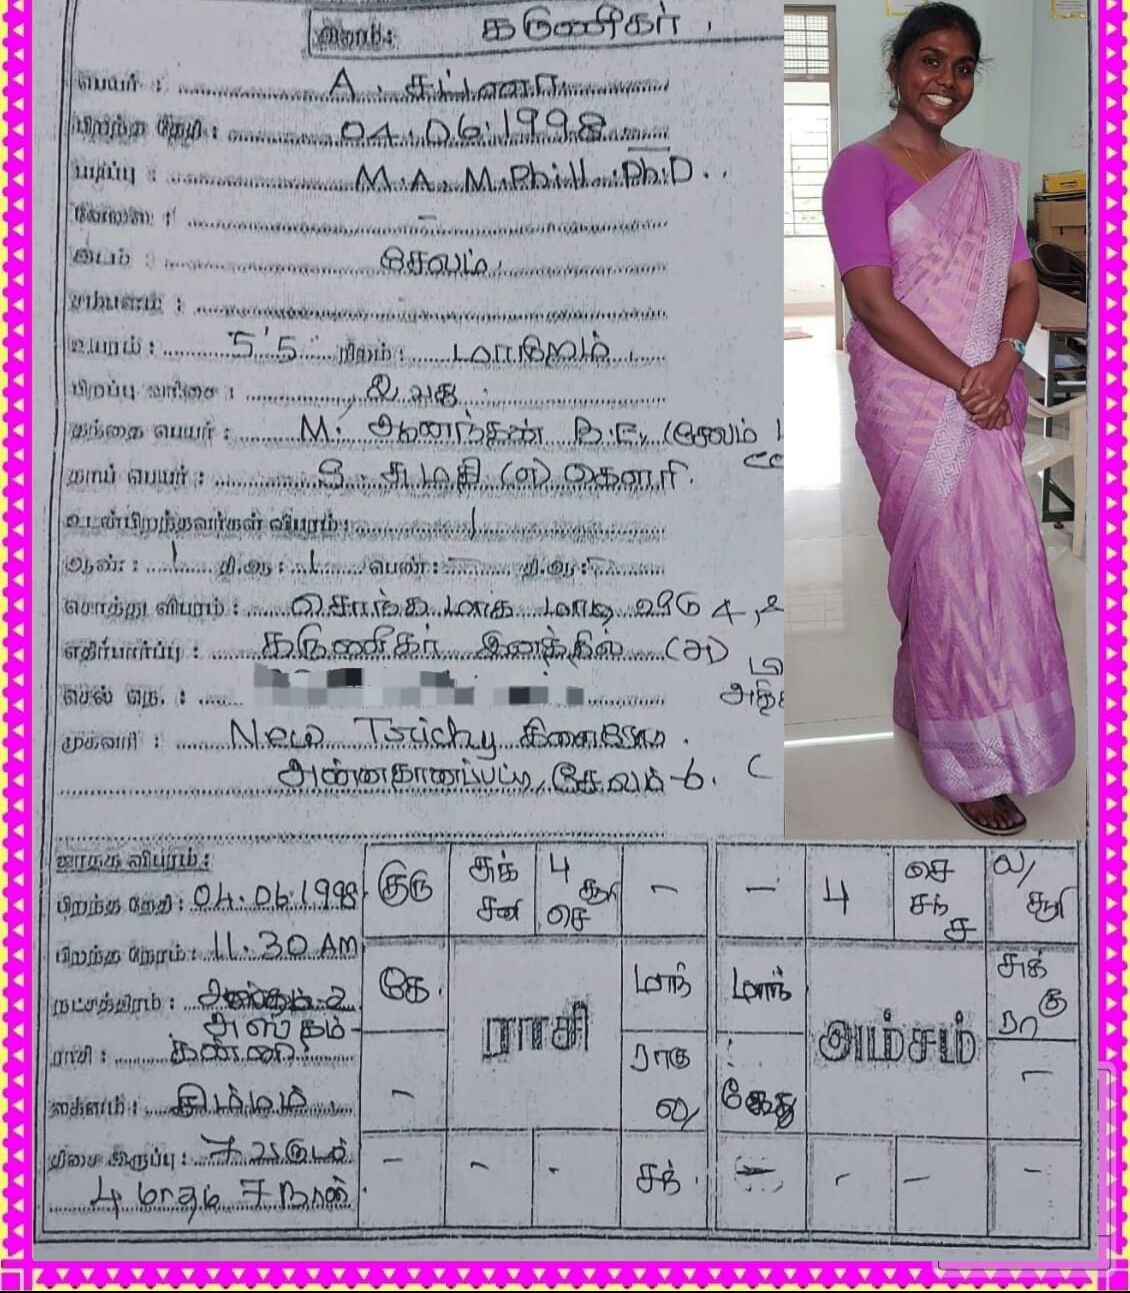 இனம்: கருணீகர்.
பெயர் : A. சப்னா
பிறந்த தேதி : 04.06.1998
படிப்பு : M.A. M.Phill. Ph.D..
வேலை : –
இடம் : சேலம்.
சம்பளம் :
உயரம் : 5'5" நிறம் : மாநிறம்
பிறப்பு வரிசை : 2 வது
தந்தை பெயர் : M. ஆனந்தன் B.E, (சேலம்
தாய் பெயர் : S. சுமதி (எ) கௌரி.
உடன்பிறந்தவர்கள் விபரம் : 1
ஆண் : 1 தி.ஆ : 1 பெண் : – தி.ஆ : –
சொத்து விபரம் : சொந்த மாத மாடி வீடு 4,
எதிர்பார்ப்பு : கருணீகர் இனத்தில் (அ)
செல் நெ. :
முகவரி : New Trichy கிளைரோடு.
அன்னதானப்பட்டி, சேலம்-6.
ஜாதக விபரம் :
பிறந்த தேதி : 04.06.1998
பிறந்த நேரம் : 11.30 AM
நட்சத்திரம் : அஸ்தம்-2
அஸ்தம்-
ராசி : கன்னி
லக்னம் : சிம்மம்
திசை இருப்பு : 7 வருடம்
4 மாதம் 7 நாள்
குரு சுக் சனி 4 சூரி செ –
கே. ராசி மாந்
– ராகு ல/
– – - சந்
– 4 செ சந் ச ல/ சூரி
மாந் அம்சம் சுக் கு ரா
கேது –
– – – –